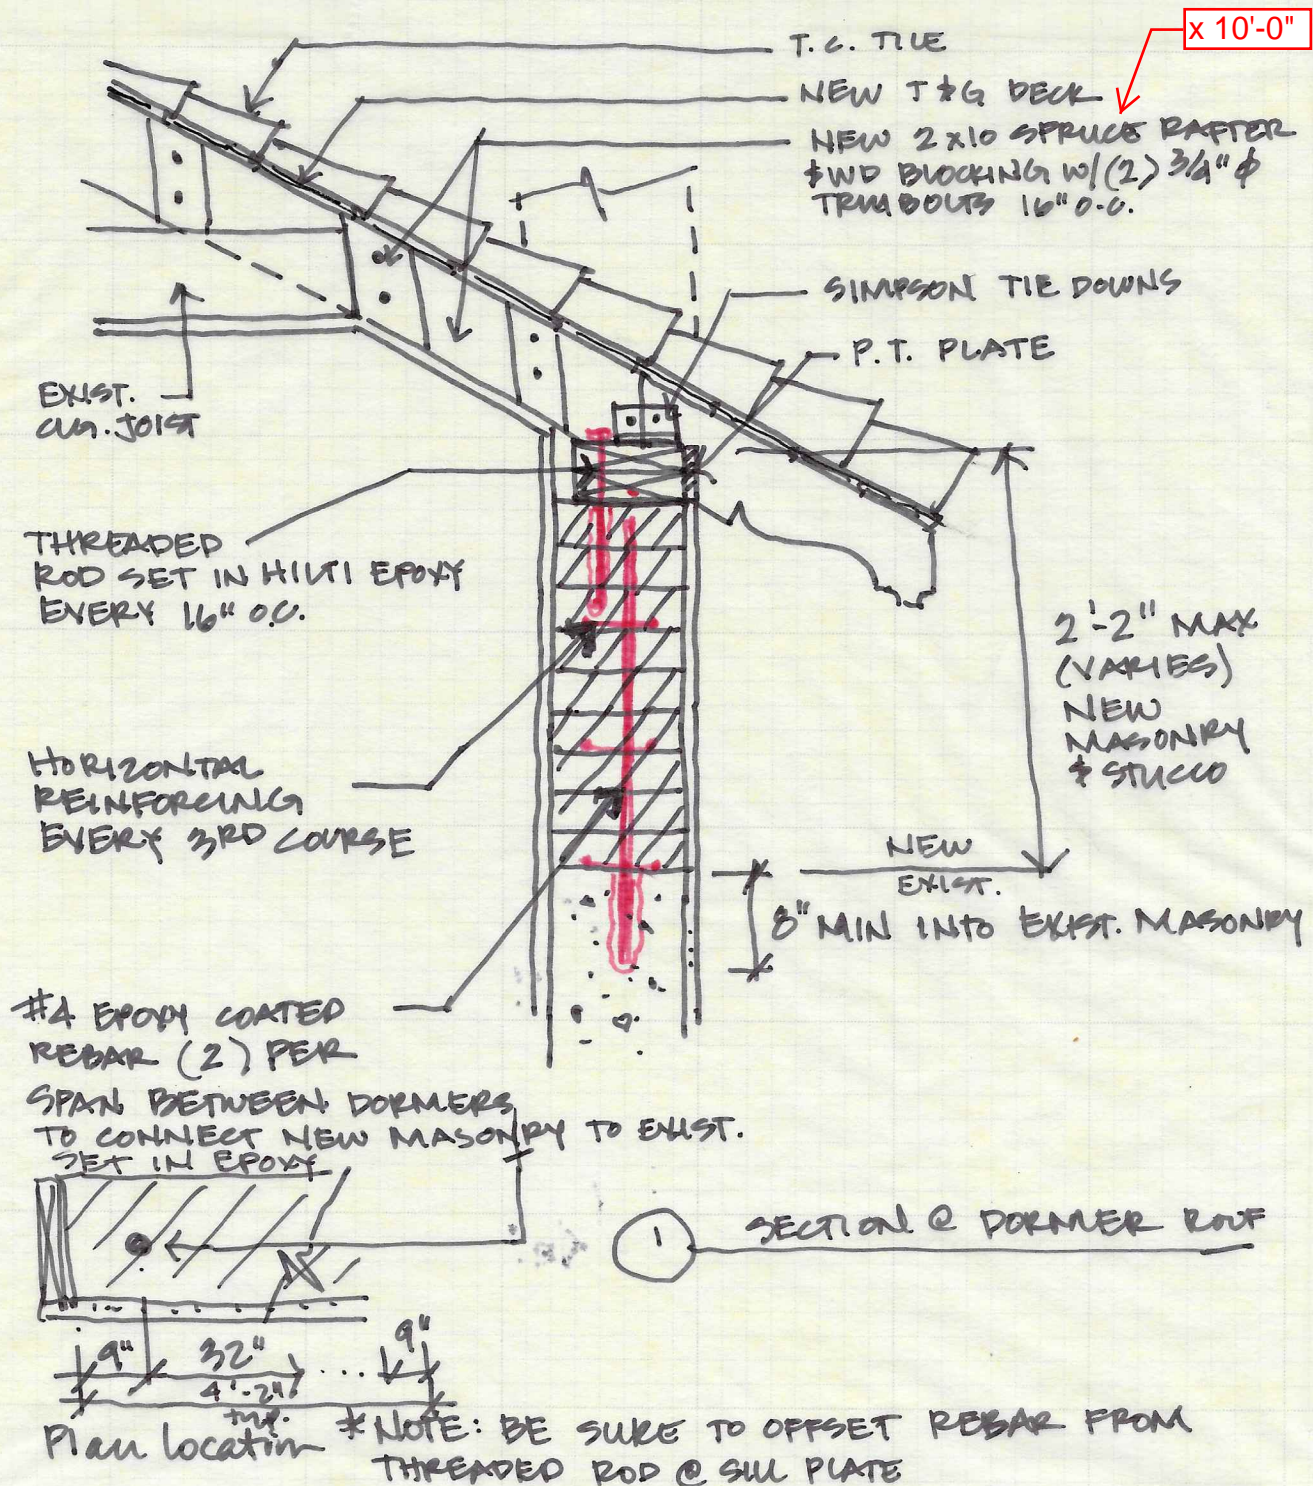 x 10'-0"
T.C. TILE
NEW T&G DECK
NEW 2x10 SPRUCE RAFTER
& WD BLOCKING W/(2) 3/4" ϕ
TRUBOLTS 16" O.C.
SIMPSON TIE DOWNS
P.T. PLATE
EXIST.
CLG. JOIST
THREADED
ROD SET IN HILTI EPOXY
EVERY 16" O.C.
2'-2" MAX
(VARIES)
NEW
MASONRY
& STUCCO
HORIZONTAL
REINFORCING
EVERY 3RD COURSE
NEW
EXIST.
8" MIN INTO EXIST. MASONRY
#4 EPOXY COATED
REBAR (2) PER
SPAN BETWEEN DORMERS
TO CONNECT NEW MASONRY TO EXIST.
SET IN EPOXY
1 SECTION @ DORMER ROOF
9" 32" ... 9"
4'-2"
typ.
Plan location
* NOTE: BE SURE TO OFFSET REBAR FROM
THREADED ROD @ SILL PLATE